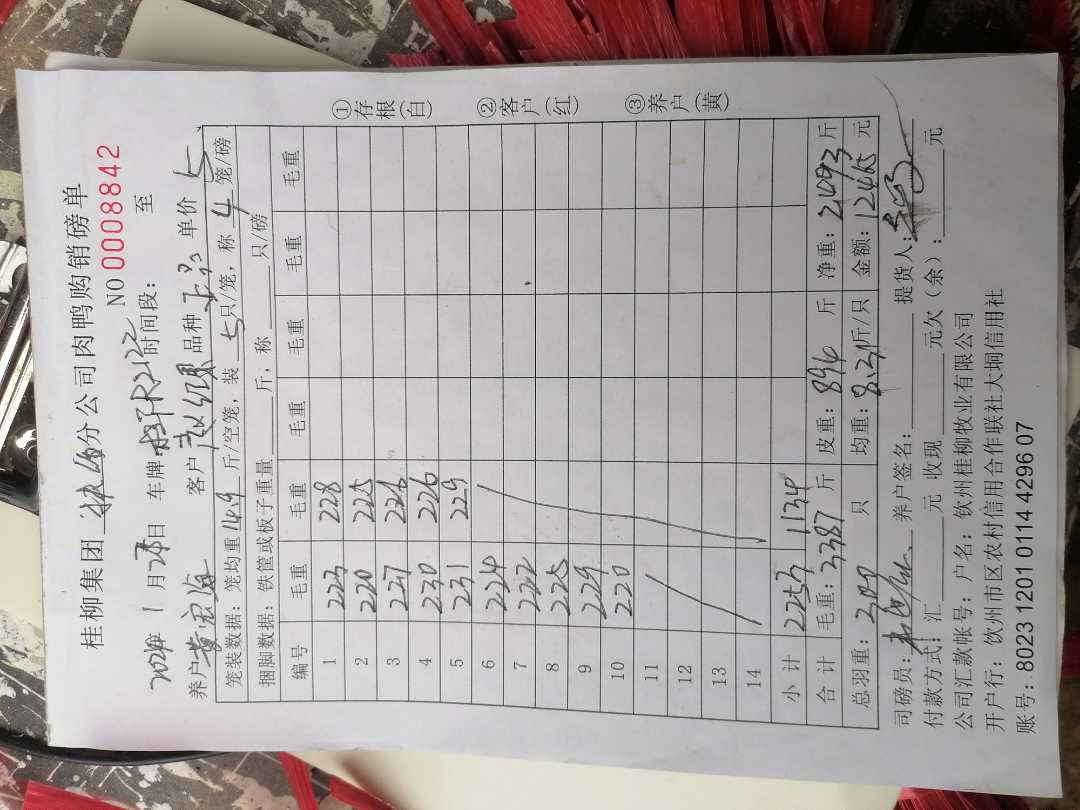 桂柳集团 分公司肉鸭购销磅单
NO 0008842
2024年 1 月 日 车牌 桂R2122 时间段: 至
养户 黄宏海 客户 品种 单价 5
笼装数据: 笼均重 14.9 斤/空笼, 装 5 只/笼, 称 4 笼/磅
捆脚数据: 铁筐或板子重量 斤, 称 只/磅
编号 毛重 毛重 毛重 毛重 毛重 毛重
1 223 228
2 220 225
3 227
4 230 226
5 231 229
6 224
7 222
8 225
9 229
10 220
11
12
13
14
小 计 1134
合 计 毛重: 3387 斤 皮重: 894 斤 净重: 2493 斤
总羽重: 300 只 均重: 8.31 斤/只 金额: 12465 元
司磅员: 养户签名: 提货人:
付款方式: 汇 元 收现 元欠 (余): 元
公司汇款帐号: 户名: 钦州桂柳牧业有限公司
开户行: 钦州市区农村信用合作联社大垌信用社
账号: 8023 1201 0114 4296 07
①存根(白)
②客户(红)
③养户(黄)